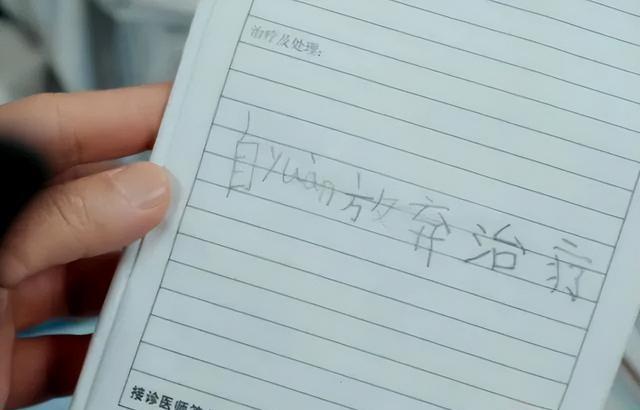 治疗及处理:
自yuàn放弃治疗
接诊医师签